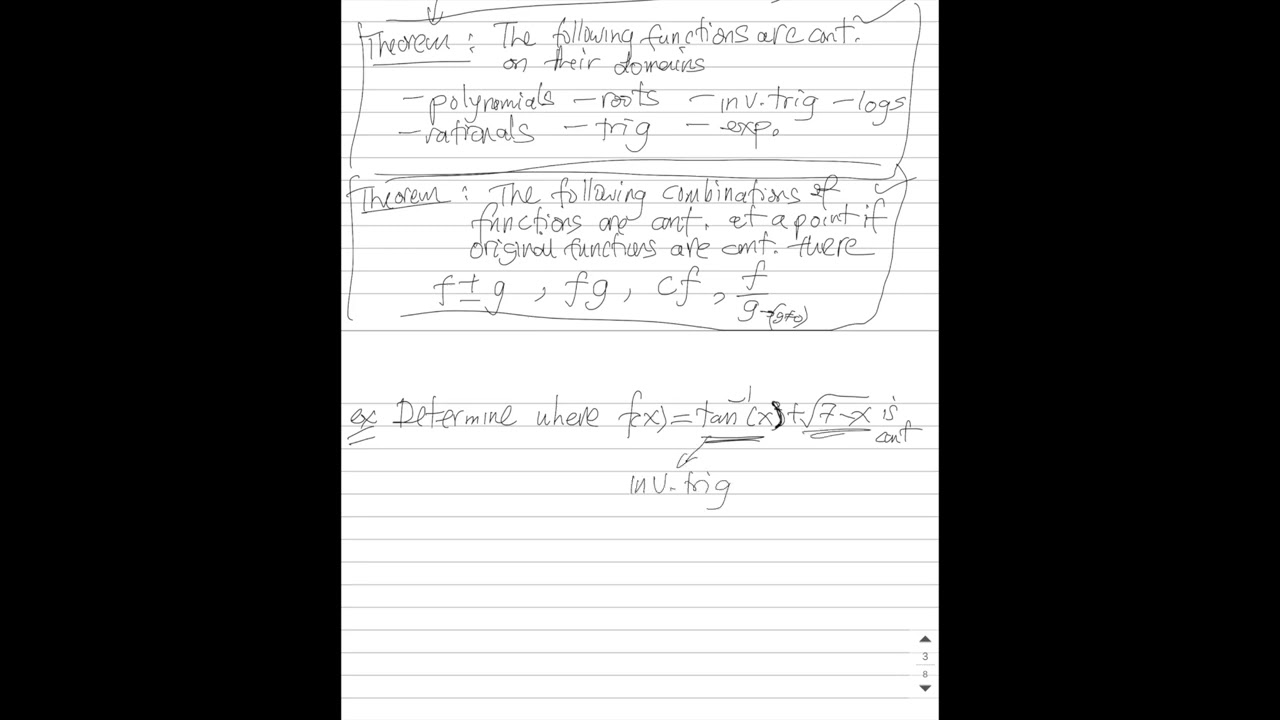 Theorem : The following functions are cont.
on their domains
- polynomials - roots - inv. trig - logs
- rationals - trig - exp.
Theorem : The following combinations of
functions are cont. at a point if
original functions are cont. there
f ± g , fg , cf , f/g → (g≠0)
ex Determine where f(x) = tan⁻¹(x) + √7-x is
cont
inv. trig
3
8